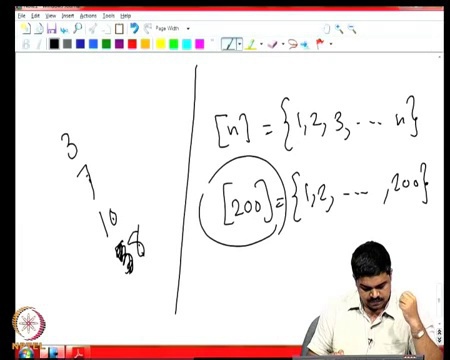 File Edit View Insert Actions Tools Help
Page Width
3
7
10
8
[n] = {1, 2, 3, ... n}
[200] = {1, 2, ..., 200}